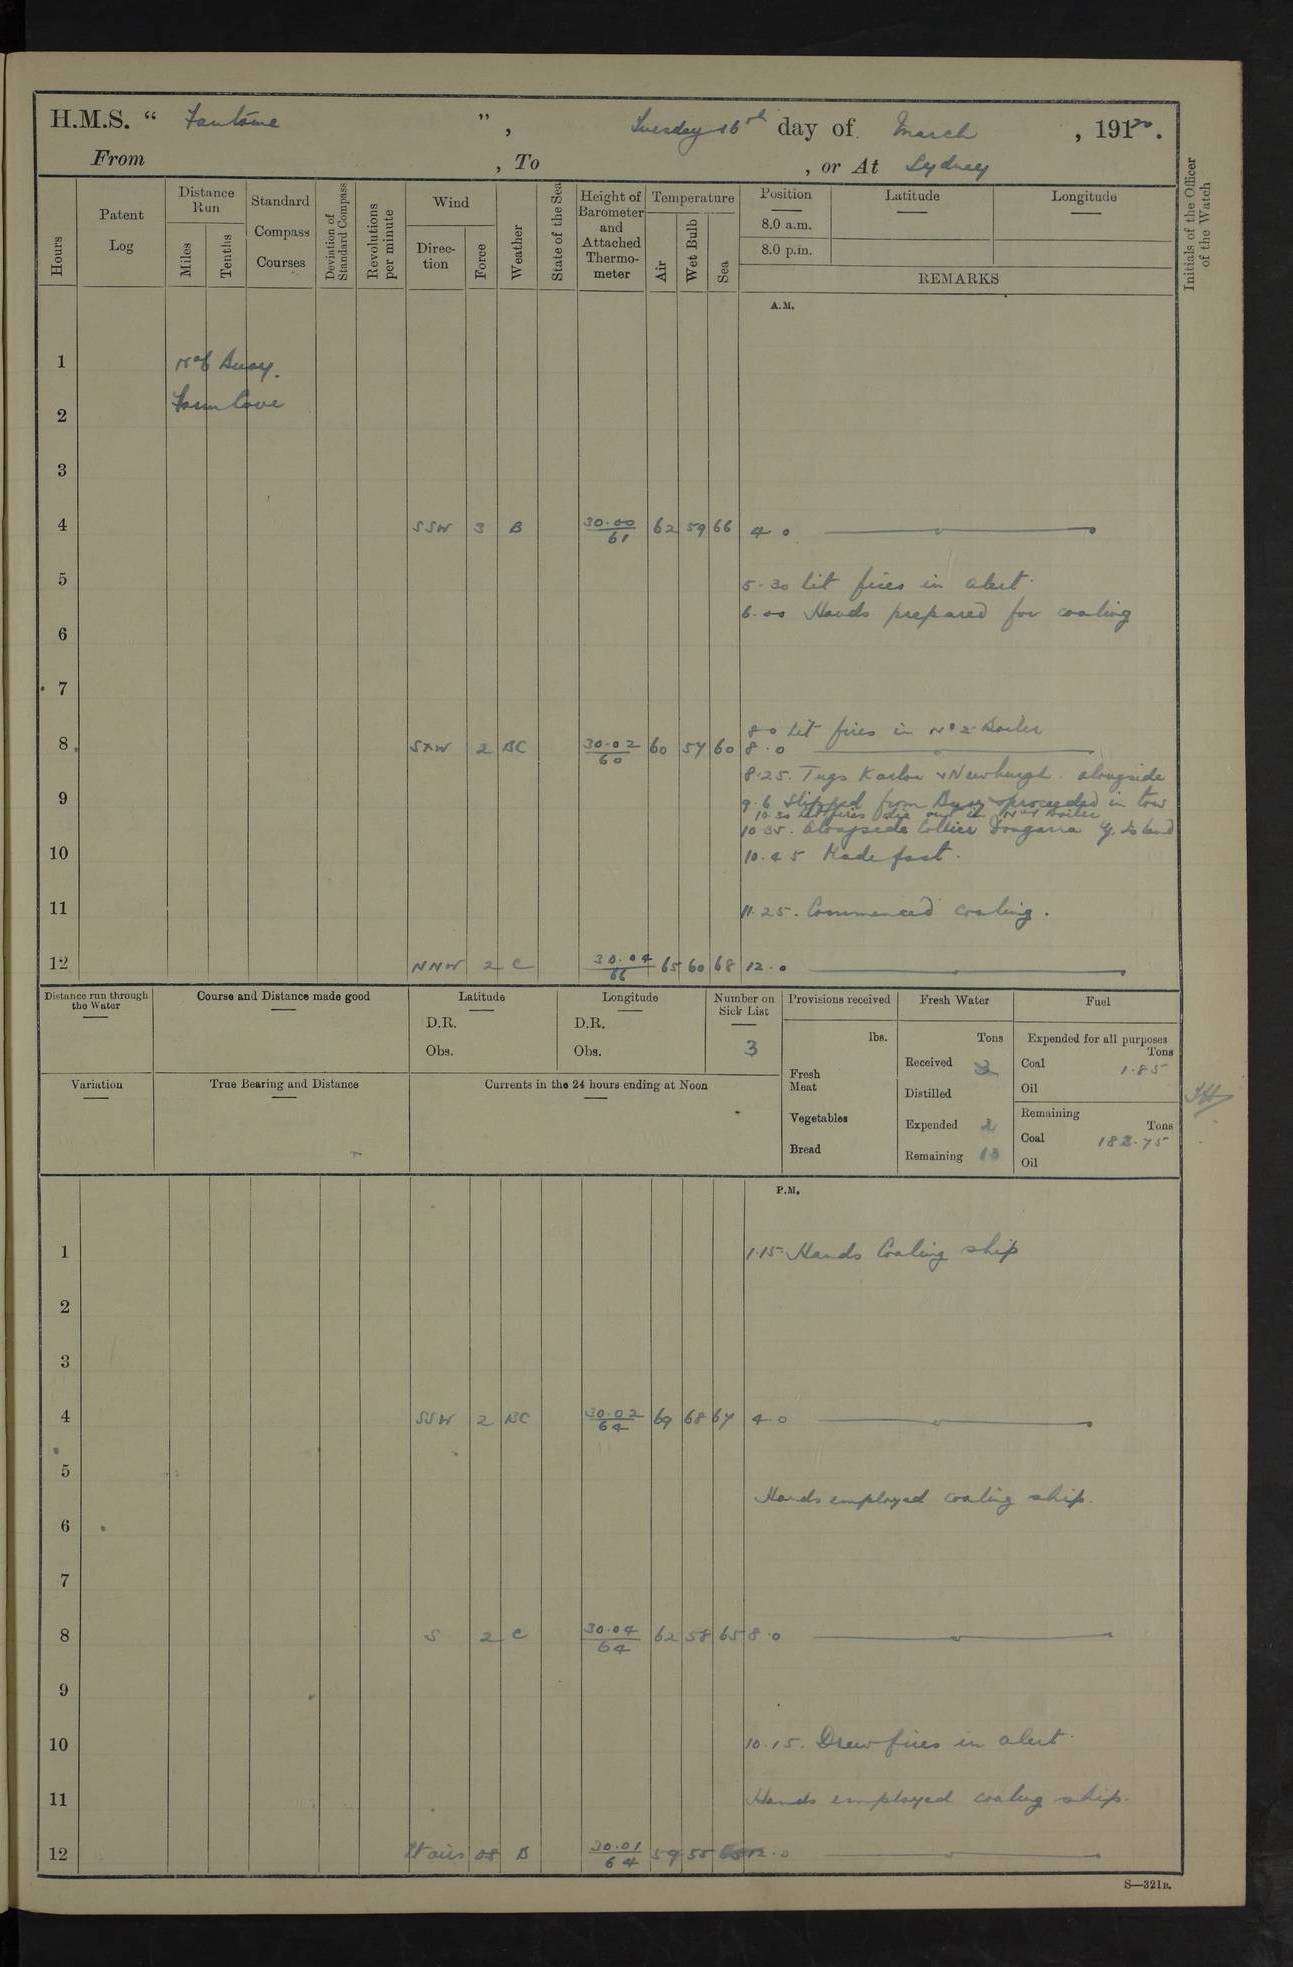 H.M.S. " Fantome ", Tuesday 16th day of March, 19120.
From , To , or At Sydney
Hours
Patent Log
Distance Run
Miles
Tenths
Standard Compass Courses
Deviation of Standard Compass
Revolutions per minute
Wind
Direction
Force
Weather
State of the Sea
Height of Barometer and Attached Thermometer
Temperature
Air
Wet Bulb
Sea
Position
8.0 a.m.
8.0 p.m.
Latitude
Longitude
REMARKS
Initials of the Officer of the Watch
A.M.
1 No 6 Buoy.
2 Farm Cove
3
4 SSW 3 B 30.00/61 62 59 66 4.0
5 5.30 Lit fires in alert.
6.00 Hands prepared for coaling
6
7
8.0 Lit fires in No 2 Boiler
8 SxW 2 BC 30.02/60 60 57 60 8.0
8.25. Tugs & Newburgh alongside
9 9.6 Slipped from Buoy & proceeded in tow
10.30 Let fires die out in No 1 Boiler
10.35. Alongside Collier G. Island
10 10.45 Made fast.
11 11.25. Commenced coaling.
12 NNW 2 C 30.04/66 65 60 68 12.0
Distance run through the Water
Course and Distance made good
Latitude
D.R.
Obs.
Longitude
D.R.
Obs.
Number on Sick List
3
Provisions received
lbs.
Fresh Meat
Vegetables
Bread
Fresh Water
Tons
Received 3
Distilled
Expended 2
Remaining 13
Fuel
Expended for all purposes
Tons
Coal 1.85
Oil
Remaining
Tons
Coal 182.75
Oil
Variation
True Bearing and Distance
Currents in the 24 hours ending at Noon
P.M.
1 1.15. Hands Coaling ship
2
3
4 SSW 2 BC 30.02/64 69 68 67 4.0
5
Hands employed coaling ship.
6
7
8 S 2 C 30.04/64 62 58 65 8.0
9
10 10.15. Drew fires in alert.
11 Hands employed coaling ship.
12 Lt airs 08 B 30.01/64 59 55 65 12.0
S—321B.